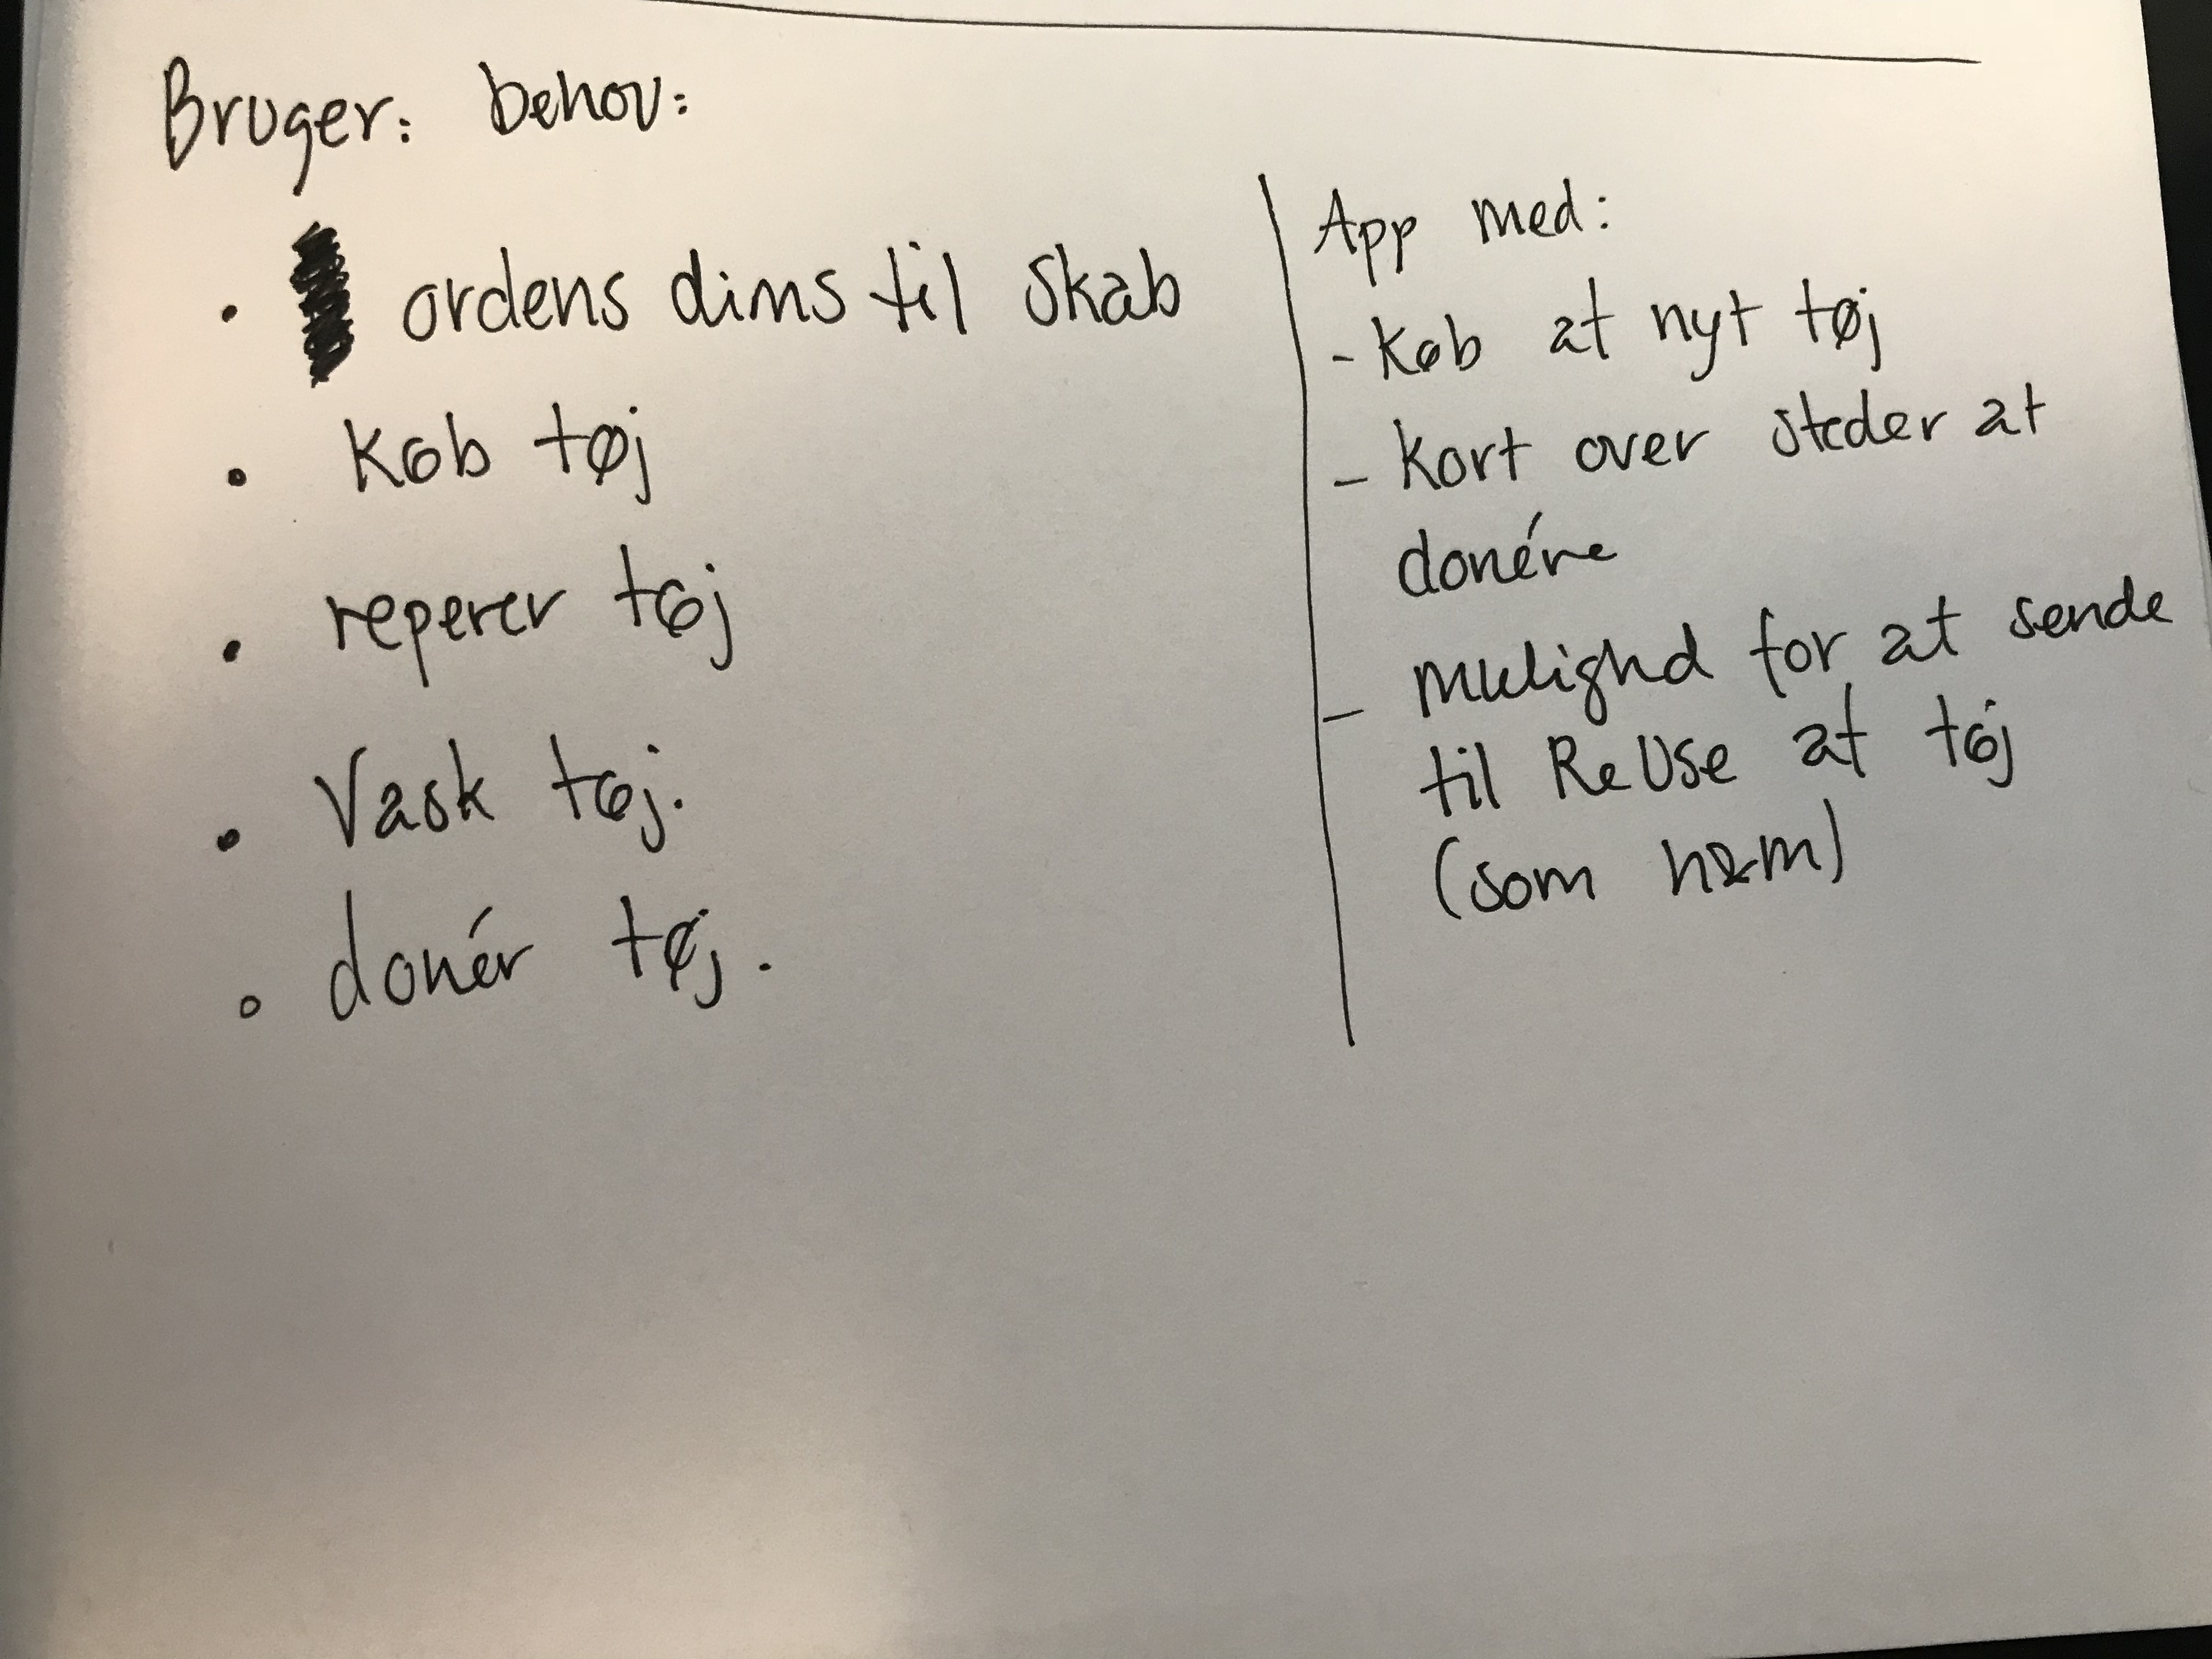 Bruger: behov:
• ordens dims til skab
• Køb tøj
• reperer tøj
• Vask tøj.
• donér tøj.
App med:
- Køb af nyt tøj
- Kort over steder at
donére
- mulighd for at sende
til ReUse af tøj
(som h&m)